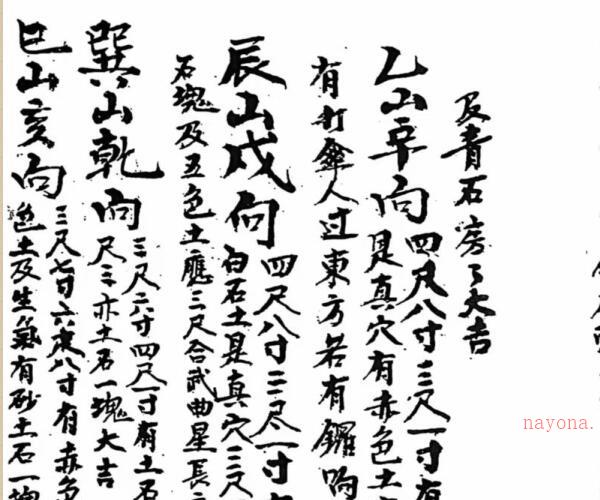 及青石房〻大吉
乙山辛向 四尺八寸三尺一寸有
是真穴有赤色土
有打傘人过東方若有鑼响
辰山戌向 四尺八寸二尺一寸
白石土是真穴三尺
石塊及五色土應三尺合武曲星長
巽山乾向 三尺六寸四尺一寸有土石
尺三亦土石一塊大吉
巳山亥向 三尺七寸六尺八寸有赤色
土及生氣有砂土石一塊
nayona.